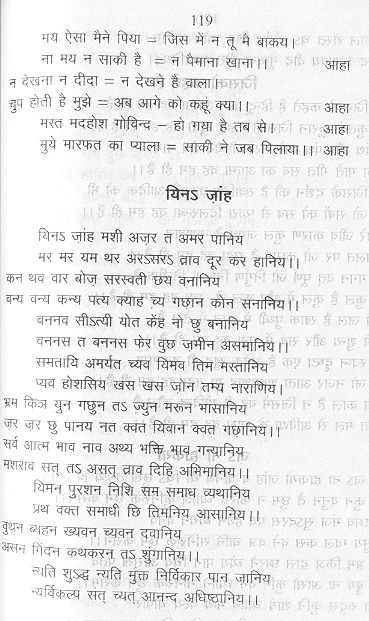 119
मय ऐसा मैने पिया = जिस में न तू मै बाकय।
ना मय न साकी है = न पैमाना खाना।। आहा
न देखना न दीदा = न देखने है वाला।
चुप होती है मुझे = अब आगे को कहूं क्या।। आहा
मस्त मदहोश गोविन्द – हो गया है तब से। आहा
मुये मारफत का प्याला = साकी ने जब पिलाया।। आहा
यिनऽ ज़ांह
यिनऽ ज़ांह मशी अज़र त अमर पानिय
मर मर यम थर अरऽसरंऽ त्राव दूर कर हानिय।।
कन थव वार बोज़ सरस्वती छय वनानिय
वन्य वन्य कन्य पत्य क्याह च्य गछान कोन सनानिय।।
वननव सीऽत्यी योत केंह नो छु बनानिय
वननस त बननस फेर वुछ ज़मीन असमानिय।।
समतायि अमर्यत च्यव यिमव तिम मस्तानिय
प्यव होशसिय खंस खस ज़ोन तम्य नाराणिय।
भ्रम किञ युन गछुन तऽ ज्युन मरून भासानिय
जर जर छु पानय नत क्वत यिवान क्वत गछानिय।।
सर्व आत्म भाव नाव अथ्य भक्ति भाव गन्यानिय
मशराव सत् तऽ असत् त्राव दिहि अभिमानिय।।
यिमन पुरशन निशि सम समाध व्यथानिय
प्रथ वक्त समाधी छि तिमनिय आसानिय।।
वुथन ब्यहन ख्यवन च्यवन दवानिय
असन गिंदन कथकरन तऽ शुंगानिय।।
न्यति शुऽद्ध न्यति मुक्त निर्विकार पान ज़ानिय
न्यर्विकल्प सत् च्यत आनन्द अधिष्ठानिय।।